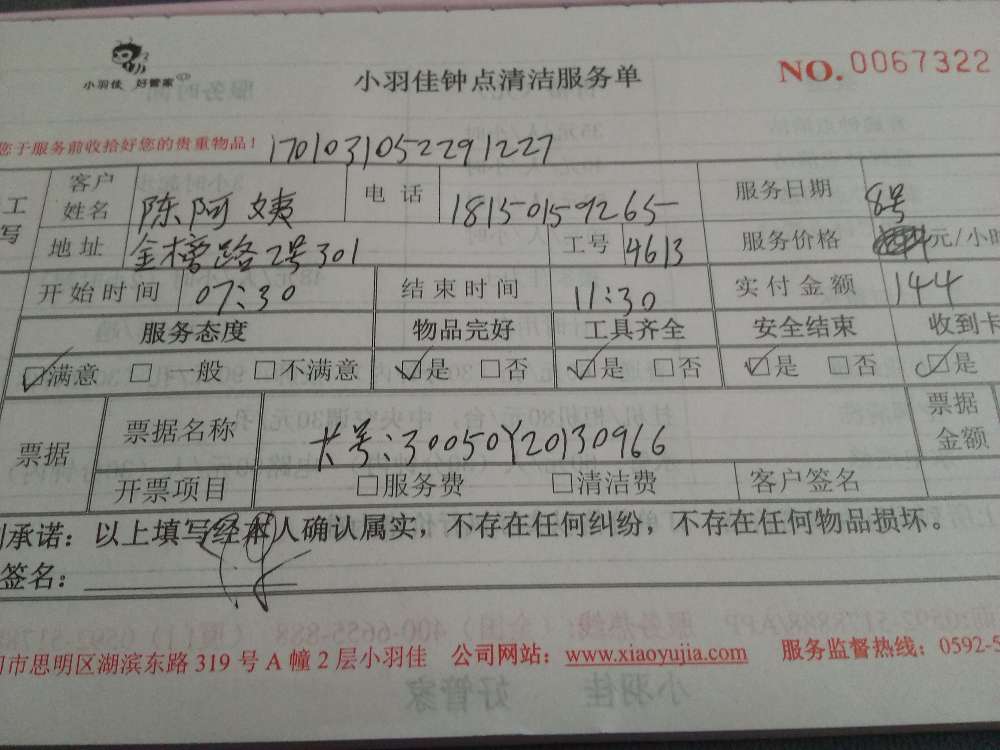 小羽佳 好管家
小羽佳钟点清洁服务单
NO.0067322
您于服务前收拾好您的贵重物品！ 1701031052291227
工 客户姓名 陈阿姨 电 话 18150159265 服务日期 8号
写 地址 金榜路2号301 工号 4613 服务价格 元/小时
开始时间 07:30 结束时间 11:30 实付金额 144
服务态度 物品完好 工具齐全 安全结束 收到卡
☑满意 □一般 □不满意 ☑是 □否 ☑是 □否 ☑是 □否 ☑是
票据 票据名称 卡号:30050Y20130966 票据金额
开票项目 □服务费 □清洁费 客户签名
承诺：以上填写经本人确认属实，不存在任何纠纷，不存在任何物品损坏。
签名：
市思明区湖滨东路 319 号 A 幢 2 层小羽佳 公司网站：www.xiaoyujia.com 服务监督热线：0592-5